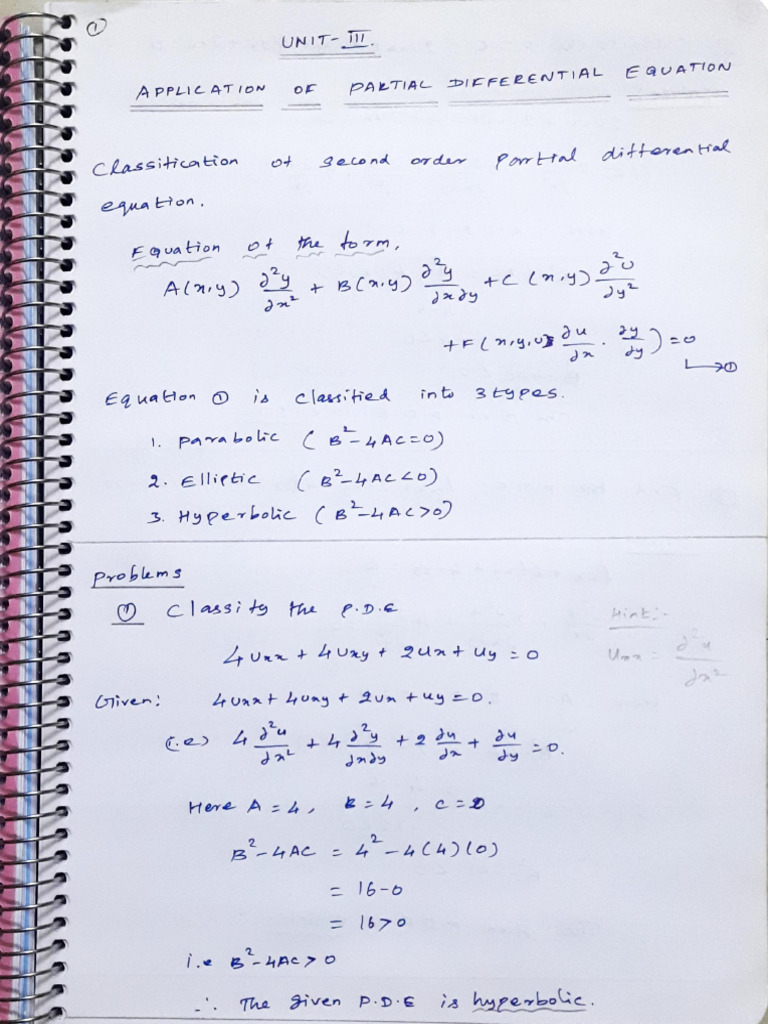 ①
UNIT-III.
APPLICATION OF PARTIAL DIFFERENTIAL EQUATION
Classification of second order partial differential
equation.
Equation of the form,
A(x,y) ∂²y/∂x² + B(x,y) ∂²y/∂x∂y + C (x,y) ∂²u/∂y²
+F(x,y,u, ∂u/∂x . ∂y/∂y) = 0
↳①
Equation ① is classified into 3 types.
1. parabolic ( B²-4AC=0)
2. Elliptic ( B²-4AC<0)
3. Hyperbolic ( B²-4AC>0)
Problems
① Classify the P.D.E
Hint:-
4Uxx + 4Uxy + 2Ux + Uy = 0
Uxx = ∂²u/∂x²
Given: 4Uxx + 4Uxy + 2Ux + Uy = 0.
(i.e) 4 ∂²u/∂x² + 4 ∂²y/∂x∂y + 2 ∂u/∂x + ∂u/∂y = 0.
Here A = 4, B = 4 , C = 0
B²-4AC = 4²-4(4)(0)
= 16-0
= 16>0
i.e B²-4AC > 0
∴ The given P.D.E is hyperbolic.